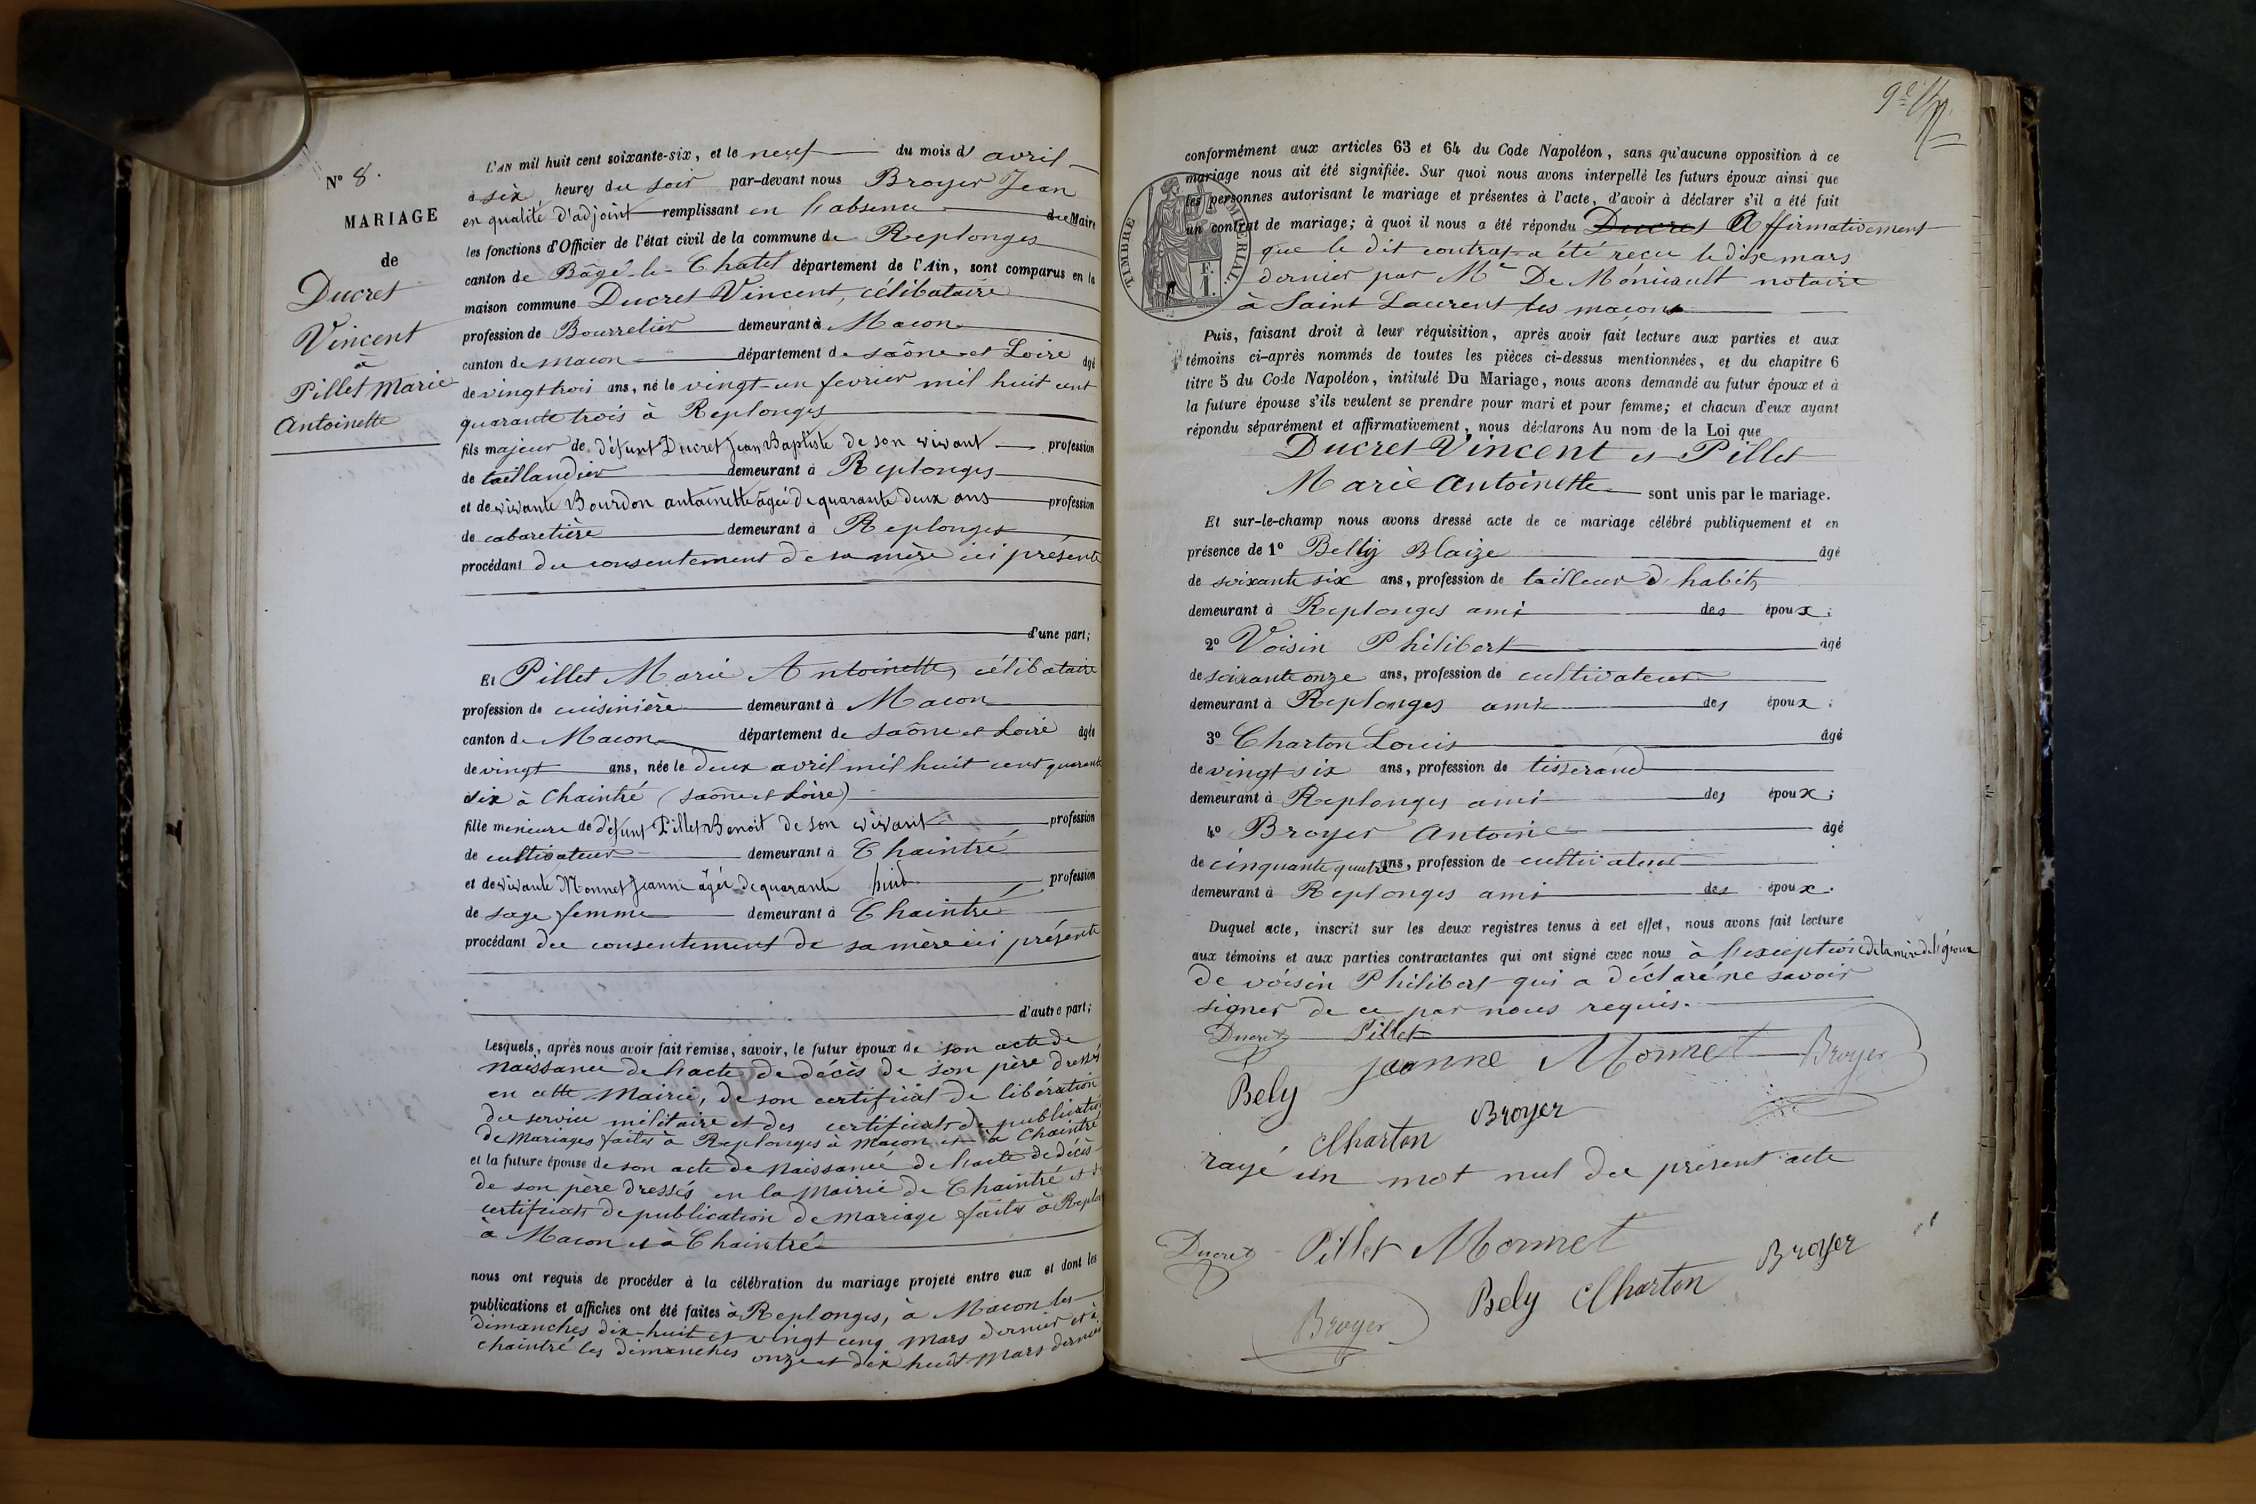 N° 8.
MARIAGE
de
Ducret
Vincent
à
Pillet Marie
Antoinette
L'AN mil huit cent soixante-six, et le neuf du mois d' avril
à six heures du soir par-devant nous Broyer Jean
en qualité d'adjoint remplissant en l'absence du Maire
les fonctions d'Officier de l'état civil de la commune de Replonges
canton de Bâgé-le-Chatel département de l'Ain, sont comparus en la
maison commune Ducret Vincent, célibataire
profession de Bourrelier demeurant à Macon
canton de macon département de Saône et Loire âgé
de vingt trois ans, né le vingt-un fevrier mil huit cent
quarante trois à Replonges
fils majeur de défunt Ducret Jean Baptiste de son vivant profession
de taillandier demeurant à Replonges
et de vivante Bourdon antoinette âgée de quarante deux ans profession
de cabaretière demeurant à Replonges
procédant du consentement de sa mère ici présente
d'une part;
Et Pillet Marie Antoinette, célibataire
profession de cuisinière demeurant à Macon
canton de Macon département de Saône et Loire âgée
de vingt ans, née le deux avril mil huit cent quarante
six à Chaintré (Saône et Loire)
fille mineure de défunt Pillet Benoit de son vivant profession
de cultivateur demeurant à Chaintré
et de vivante Monnet Jeanne âgée de quarante huit profession
de sage femme demeurant à Chaintré
procédant du consentement de sa mère ici présente
d'autre part;
Lesquels, après nous avoir fait remise, savoir, le futur époux de son acte de
naissance de l'acte de décès de son père dressés
en cette Mairie, de son certificat de libération
du service militaire et des certificats de publication
de Mariages faites à Replonges à Macon et à Chaintré
et la future épouse de son acte de Naissance de l'acte de décès
de son père dressés en la Mairie de Chaintré et
certificats de publication de mariage faites à
à Macon et à Chaintré
nous ont requis de procéder à la célébration du mariage projeté entre eux et dont les
publications et affiches ont été faites à Replonges, à Macon les
dimanches dix-huit et vingt cinq mars dernier et à
chaintré les dimanches onze et dix huit mars dernier
conformément aux articles 63 et 64 du Code Napoléon, sans qu'aucune opposition à ce
mariage nous ait été signifiée. Sur quoi nous avons interpellé les futurs époux ainsi que
les personnes autorisant le mariage et présentes à l'acte, d'avoir à déclarer s'il a été fait
un contrat de mariage; à quoi il nous a été répondu Ducret Affirmativement
que le dit contrat a été reçu le dix mars
dernier par Me De Moniault notaire
à Saint Laurent les macon
TIMBRE IMPÉRIAL.
F.
1.
Puis, faisant droit à leur réquisition, après avoir fait lecture aux parties et aux
témoins ci-après nommés de toutes les pièces ci-dessus mentionnées, et du chapitre 6
titre 5 du Code Napoléon, intitulé Du Mariage, nous avons demandé au futur époux et à
la future épouse s'ils veulent se prendre pour mari et pour femme; et chacun d'eux ayant
répondu séparément et affirmativement, nous déclarons Au nom de la Loi que
Ducret Vincent et Pillet
Marie Antoinette sont unis par le mariage.
Et sur-le-champ nous avons dressé acte de ce mariage célébré publiquement et en
présence de 1° Blaize âgé
de soixante six ans, profession de tailleur d'habits
demeurant à Replonges ami des époux;
2° Voisin Philibert âgé
de soixante onze ans, profession de cultivateur
demeurant à Replonges ami des époux;
3° Charton Louis âgé
de vingt six ans, profession de tisserand
demeurant à Replonges ami des époux;
4° Broyer Antoine âgé
de cinquante quatre ans, profession de cultivateur
demeurant à Replonges ami des époux.
Duquel acte, inscrit sur les deux registres tenus à cet effet, nous avons fait lecture
aux témoins et aux parties contractantes qui ont signé avec nous à l'exception de la mère de l'époux
de voisin Philibert qui a déclaré ne savoir
signer de ce par nous requis.
Ducret Pillet
Jeanne Monnet Broyer
Bely
Charton Broyer
rayé un mot nul du present acte
Ducret Pillet Monnet
Bely Charton Broyer
Broyer